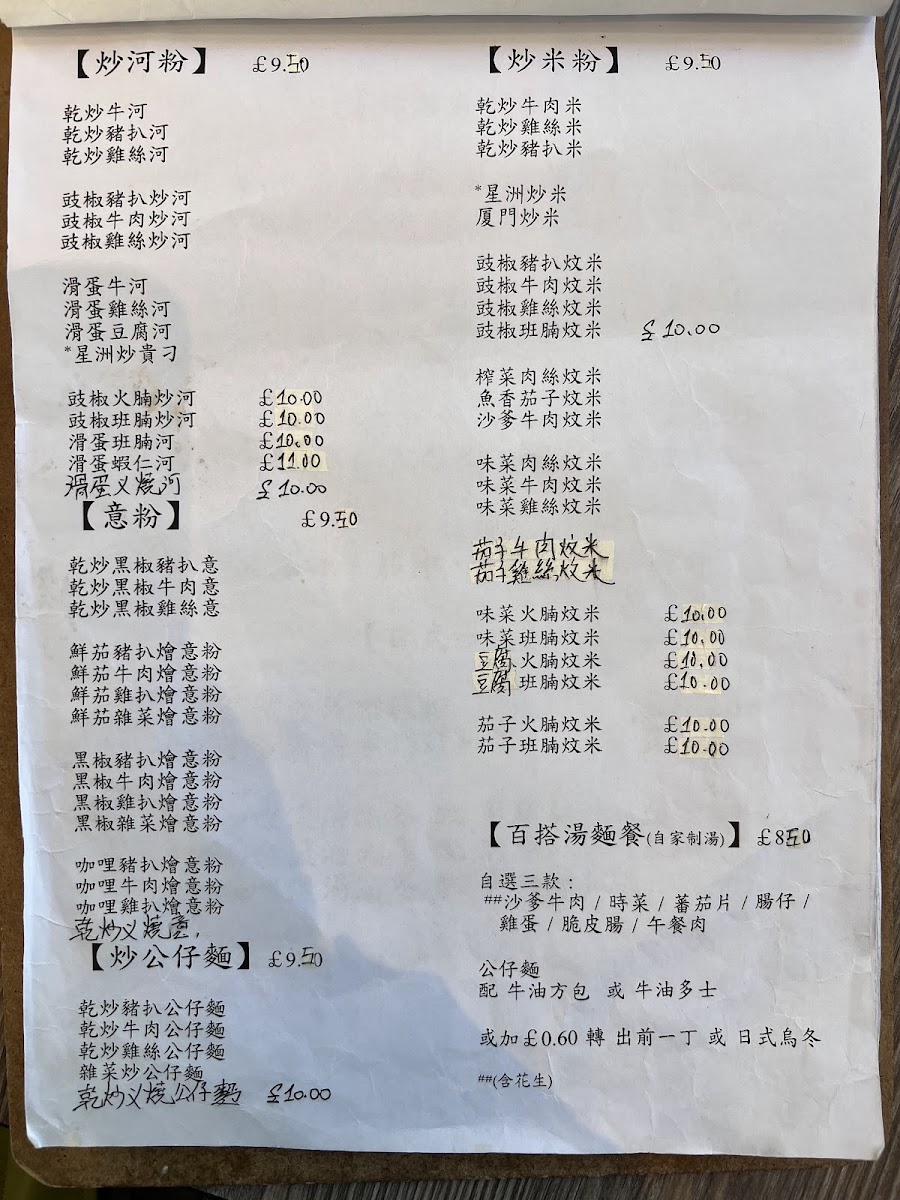 【炒河粉】 £9.50
乾炒牛河
乾炒豬扒河
乾炒雞絲河
豉椒豬扒炒河
豉椒牛肉炒河
豉椒雞絲炒河
滑蛋牛河
滑蛋雞絲河
滑蛋豆腐河
*星洲炒貴刁
豉椒火腩炒河 £10.00
豉椒班腩炒河 £10.00
滑蛋班腩河 £10.00
滑蛋蝦仁河 £11.00
滑蛋义燒河 £10.00
【意粉】 £9.50
乾炒黑椒豬扒意
乾炒黑椒牛肉意
乾炒黑椒雞絲意
鮮茄豬扒燴意粉
鮮茄牛肉燴意粉
鮮茄雞扒燴意粉
鮮茄雜菜燴意粉
黑椒豬扒燴意粉
黑椒牛肉燴意粉
黑椒雞扒燴意粉
黑椒雜菜燴意粉
咖哩豬扒燴意粉
咖哩牛肉燴意粉
咖哩雞扒燴意粉
乾炒义燒意,
【炒公仔麵】 £9.50
乾炒豬扒公仔麵
乾炒牛肉公仔麵
乾炒雞絲公仔麵
雜菜炒公仔麵
乾炒义燒公仔麵 £10.00
【炒米粉】 £9.50
乾炒牛肉米
乾炒雞絲米
乾炒豬扒米
*星洲炒米
厦門炒米
豉椒豬扒炆米
豉椒牛肉炆米
豉椒雞絲炆米
豉椒班腩炆米 £10.00
榨菜肉絲炆米
魚香茄子炆米
沙爹牛肉炆米
味菜肉絲炆米
味菜牛肉炆米
味菜雞絲炆米
茄子牛肉炆米
茄子雞絲炆米
味菜火腩炆米 £10.00
味菜班腩炆米 £10.00
豆腐火腩炆米 £10.00
豆腐班腩炆米 £10.00
茄子火腩炆米 £10.00
茄子班腩炆米 £10.00
【百搭湯麵餐(自家制湯)】 £8.50
自選三款：
##沙爹牛肉 / 時菜 / 蕃茄片 / 腸仔 /
雞蛋 / 脆皮腸 / 午餐肉
公仔麵
配 牛油方包 或 牛油多士
或加£0.60 轉 出前一丁 或 日式烏冬
##(含花生)